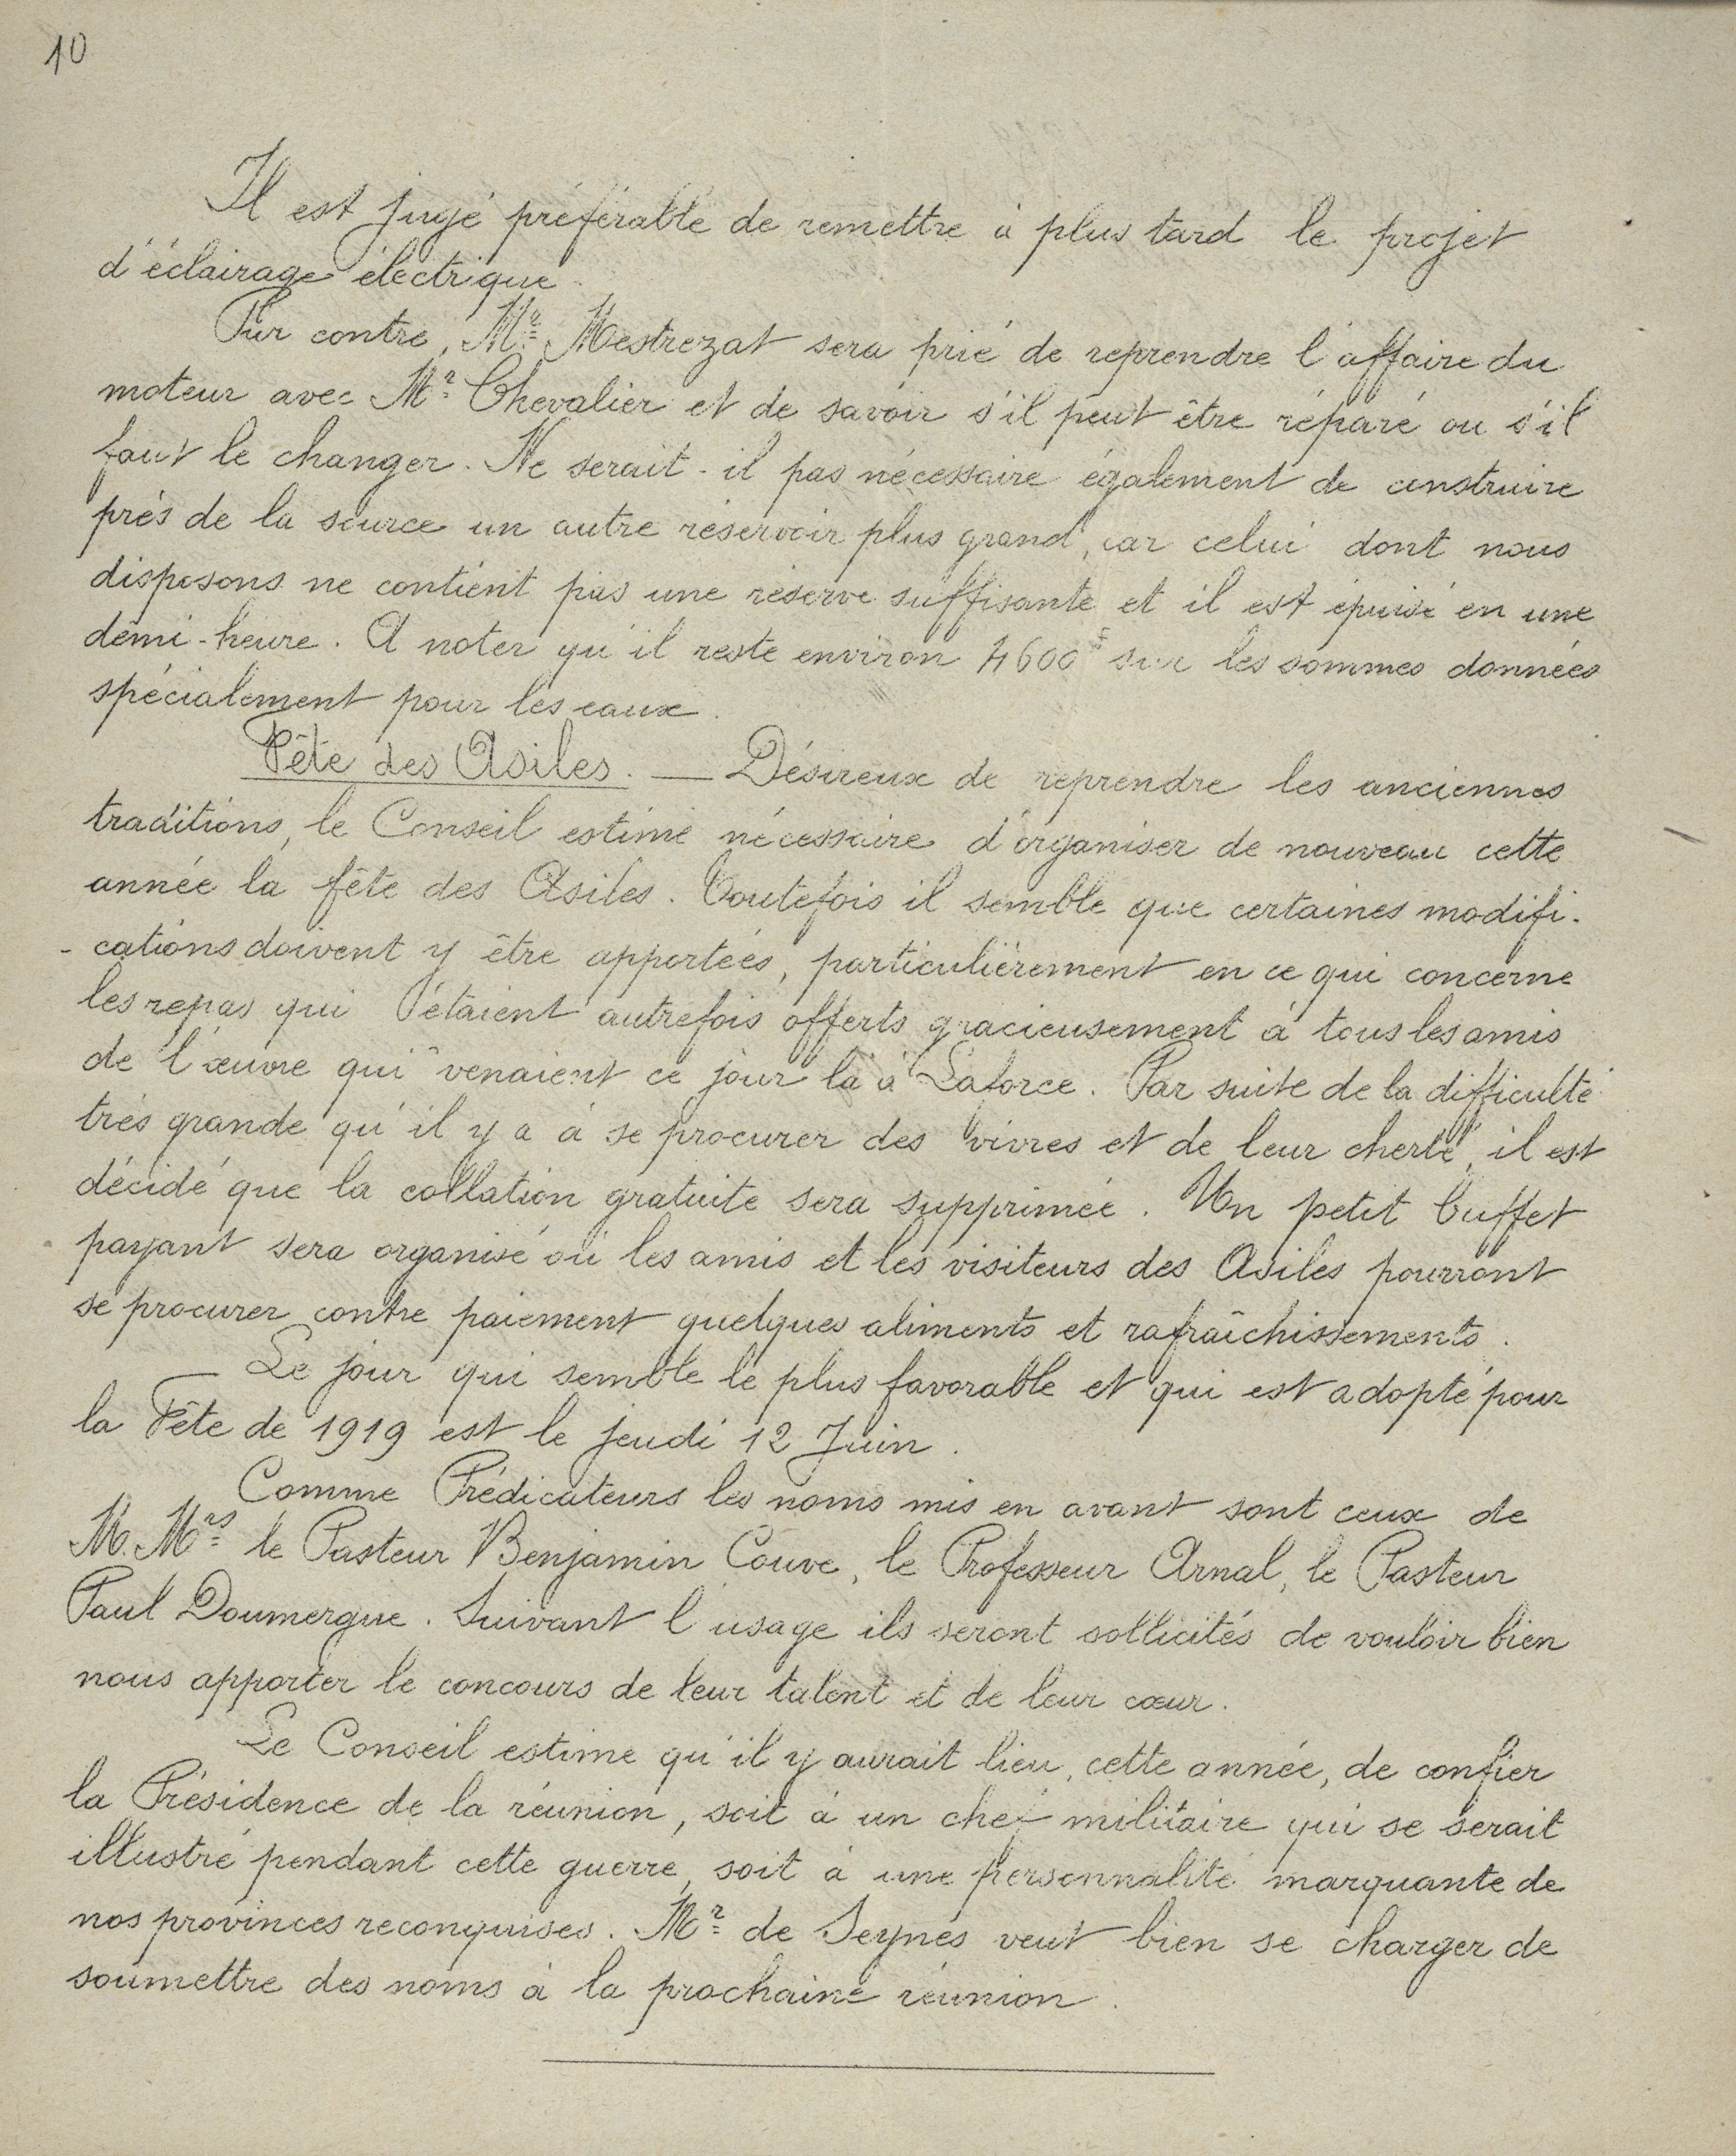 10
Il est jugé préférable de remettre à plus tard le projet
d'éclairage électrique.
Par contre, Mr Mestrezat sera prié de reprendre l'affaire du
moteur avec Mr Chevalier et de savoir s'il peut être réparé ou s'il
faut le changer. Ne serait-il pas nécessaire également de construire
près de la source un autre réservoir plus grand, car celui dont nous
disposons ne contient pas une réserve suffisante et il est épuisé en une
demi-heure. A noter qu'il reste environ 4600f sur les sommes données
spécialement pour les eaux.
Fête des Asiles. — Désireux de reprendre les anciennes
traditions, le Conseil estime nécessaire d'organiser de nouveau cette
année la fête des Asiles. Toutefois il semble que certaines modifi-
-cations doivent y être apportées, particulièrement en ce qui concerne
les repas qui étaient autrefois offerts gracieusement à tous les amis
de l'œuvre qui venaient ce jour là à Laforce. Par suite de la difficulté
très grande qu'il y a à se procurer des vivres et de leur cherté, il est
décidé que la collation gratuite sera supprimée. Un petit buffet
payant sera organisé où les amis et les visiteurs des Asiles pourront
se procurer contre paiement quelques aliments et rafraîchissements.
Le jour qui semble le plus favorable et qui est adopté pour
la Fête de 1919 est le jeudi 12 Juin.
Comme Prédicateurs les noms mis en avant sont ceux de
M.Mrs le Pasteur Benjamin Couve, le Professeur Arnal, le Pasteur
Paul Doumergue. Suivant l'usage ils seront sollicités de vouloir bien
nous apporter le concours de leur talent et de leur cœur.
Le Conseil estime qu'il y aurait lieu, cette année, de confier
la Présidence de la réunion, soit à un chef militaire qui se serait
illustré pendant cette guerre, soit à une personnalité marquante de
nos provinces reconquises. Mr de Seynes veut bien se charger de
soumettre des noms à la prochaine réunion.